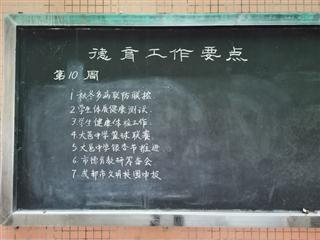 德育工作要点
第10周
1.秋冬多病联防联控
2.学生体质健康测试.
3.学生健康体检工作.
4.大邑中学篮球联赛
5.大邑中学银杏节推进
6.市德育教研筹备会
7.成都市文明校园申报